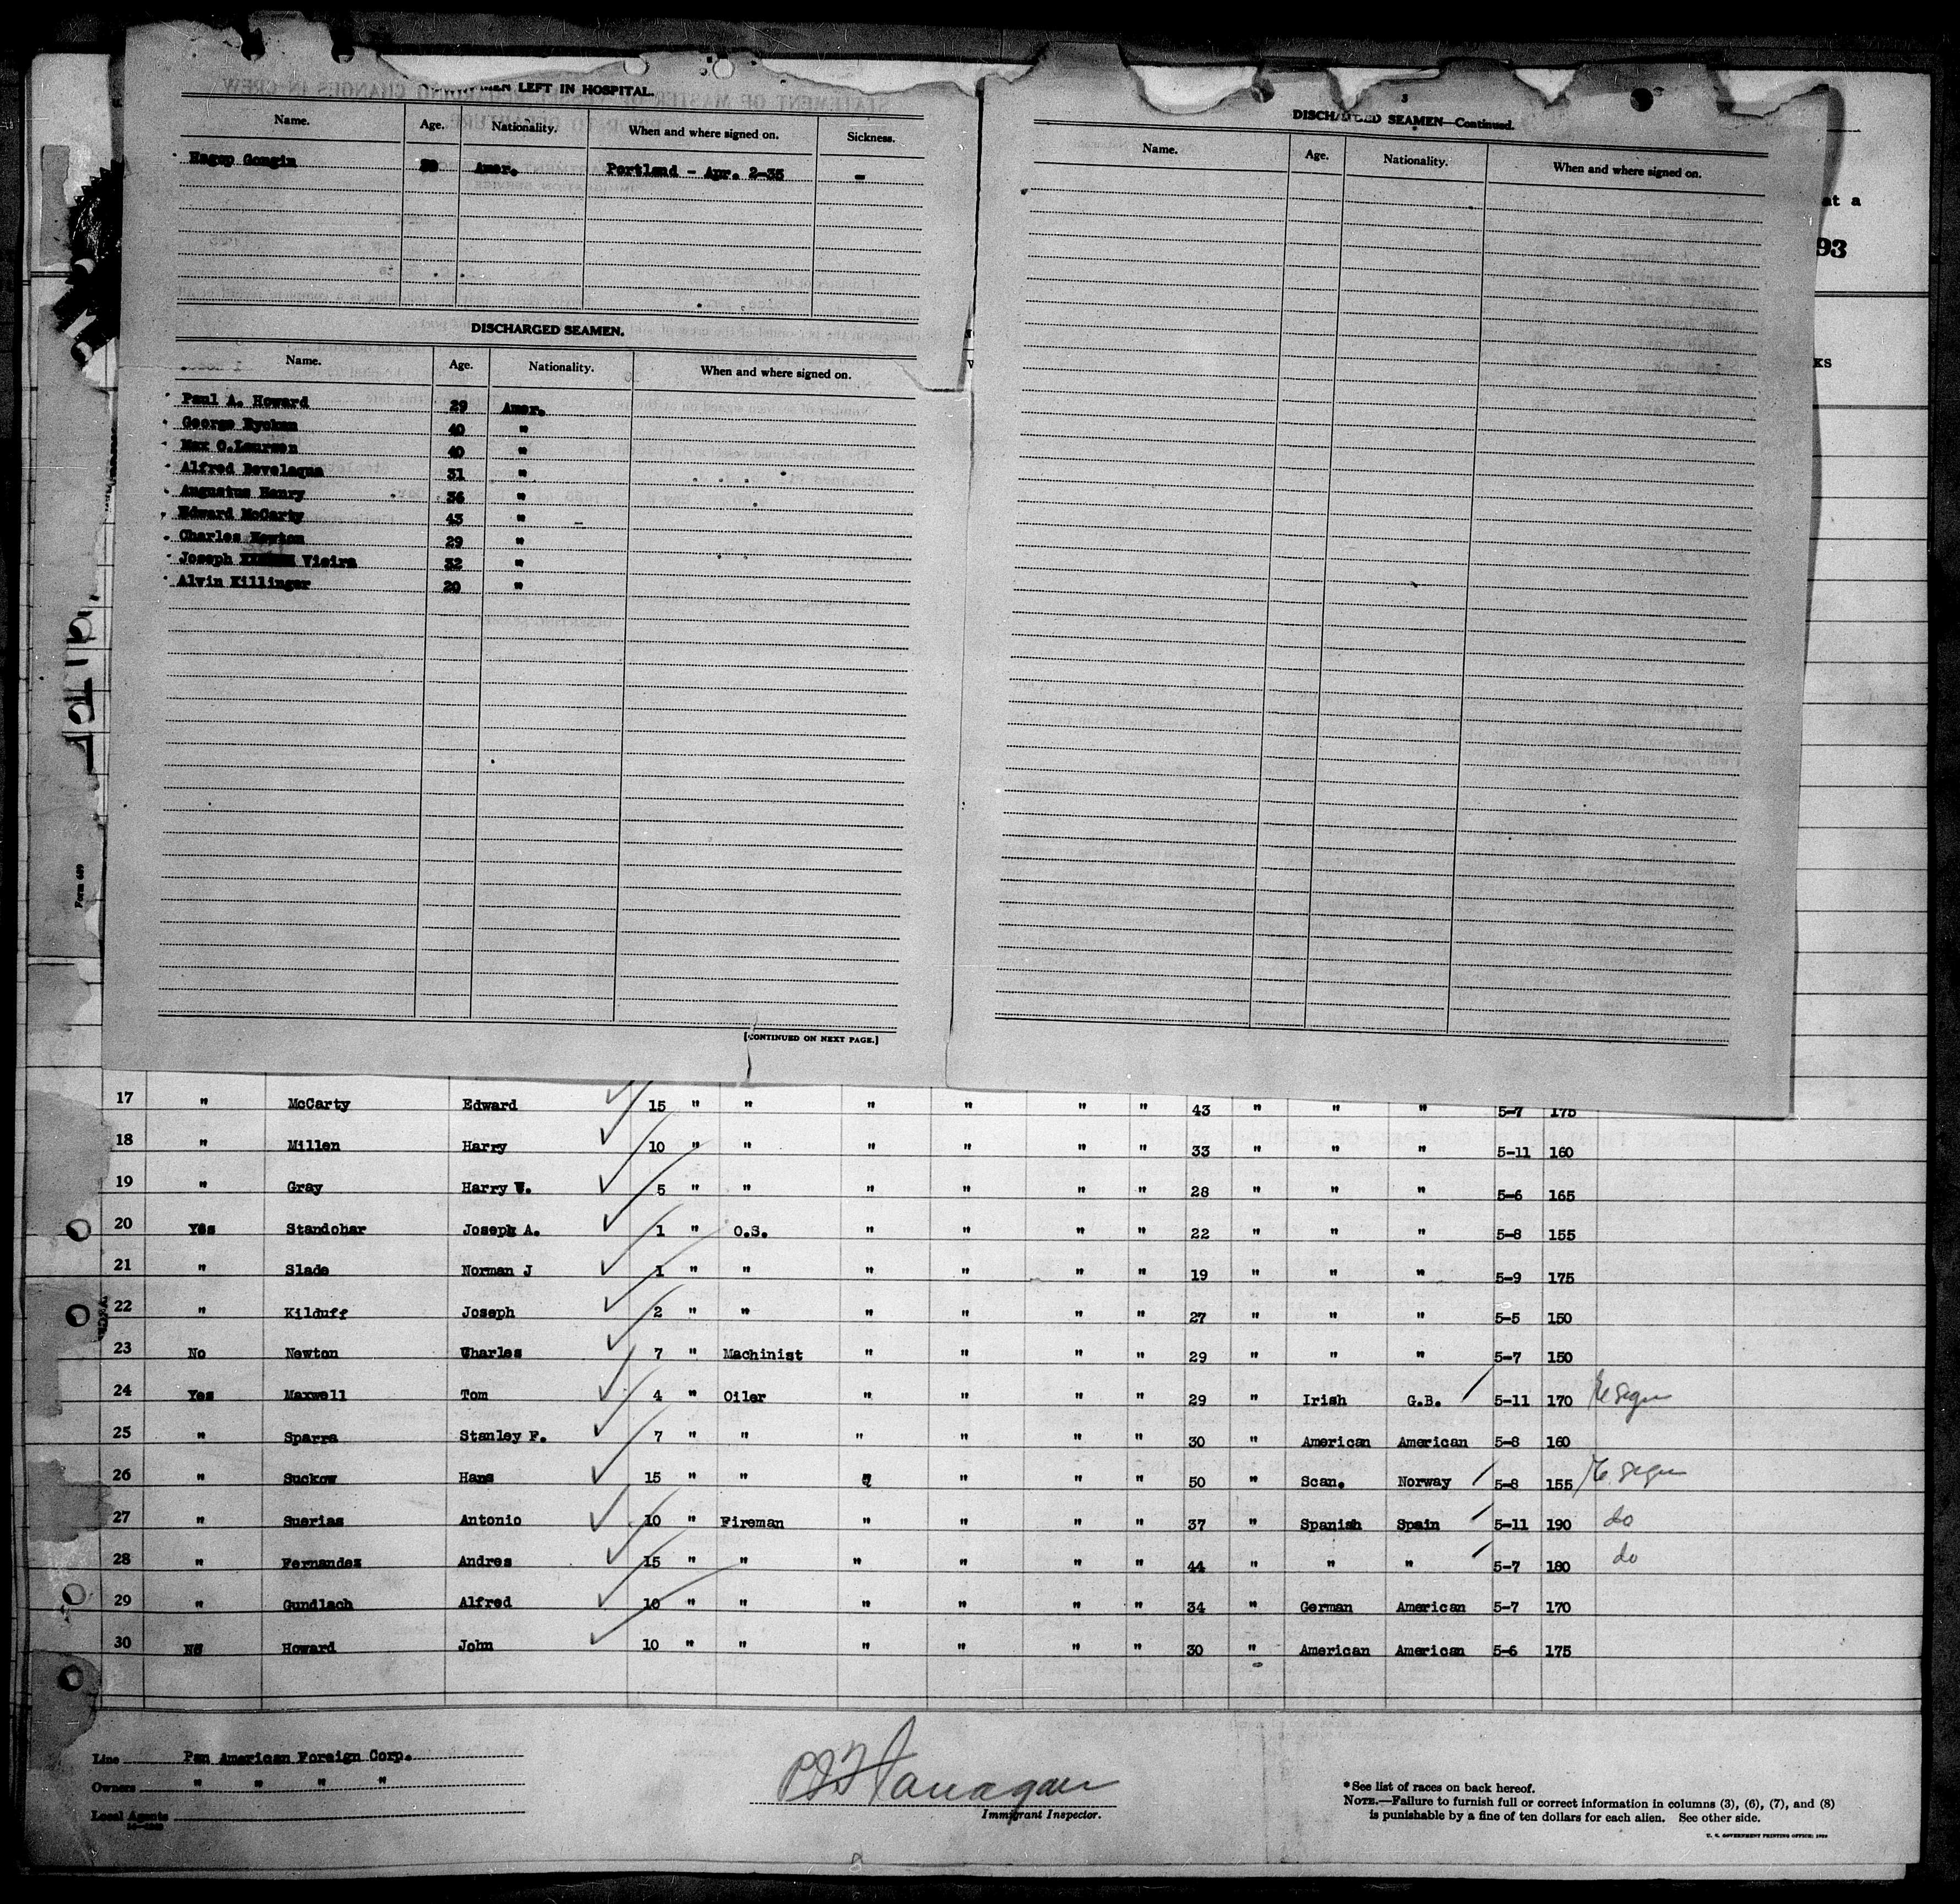 LEFT IN HOSPITAL.
Name. Age. Nationality. When and where signed on. Sickness.
Hagop Gongin Amer. Portland - Apr. 2-35 -
DISCHARGED SEAMEN.
Name. Age. Nationality. When and where signed on.
Paul A. Howard 29 Amer.
George Ryckman 40 "
Max O.Laursen 40 "
Alfred Bevelaqua 31 "
Augustus Henry 36 "
Edward McCarty 43 "
Charles Newton 29 "
Joseph Vieira 32 "
Alvin Killinger 20 "
[CONTINUED ON NEXT PAGE.]
3
DISCHARGED SEAMEN—Continued.
Name. Age. Nationality. When and where signed on.
at a
93
KS
Form 689
17 " McCarty Edward 15 " " " " " " 43 " " " 5-7 175
18 " Millen Harry 10 " " " " " " 33 " " " 5-11 160
19 " Gray Harry W. 5 " " " " " " 28 " " " 5-6 165
20 Yes Standohar Joseph A. 1 " O.S. " " " " 22 " " " 5-8 155
21 " Slade Norman J 1 " " " " " " 19 " " " 5-9 175
22 " Kilduff Joseph 2 " " " " " " 27 " " " 5-5 150
23 No Newton Charles 7 " Machinist " " " " 29 " " " 5-7 150
24 Yes Maxwell Tom 4 " Oiler " " " " 29 " Irish G.B. 5-11 170
25 " Sparra Stanley F. 7 " " " " " " 30 " American American 5-8 160
26 " Suckow Hans 15 " " " " " 50 " Scan. Norway 5-8 155
27 " Suerias Antonio 10 " Fireman " " " " 37 " Spanish Spain 5-11 190 do
28 " Fernandez Andres 15 " " " " " " 44 " " " 5-7 180 do
29 " Gundlach Alfred 10 " " " " " " 34 " German American 5-7 170
30 No Howard John 10 " " " " " " 30 " American American 5-6 175
Line Pan American Foreign Corp.
Owners " " " "
Local Agents
Immigrant Inspector.
* See list of races on back hereof.
NOTE.—Failure to furnish full or correct information in columns (3), (6), (7), and (8)
is punishable by a fine of ten dollars for each alien. See other side.